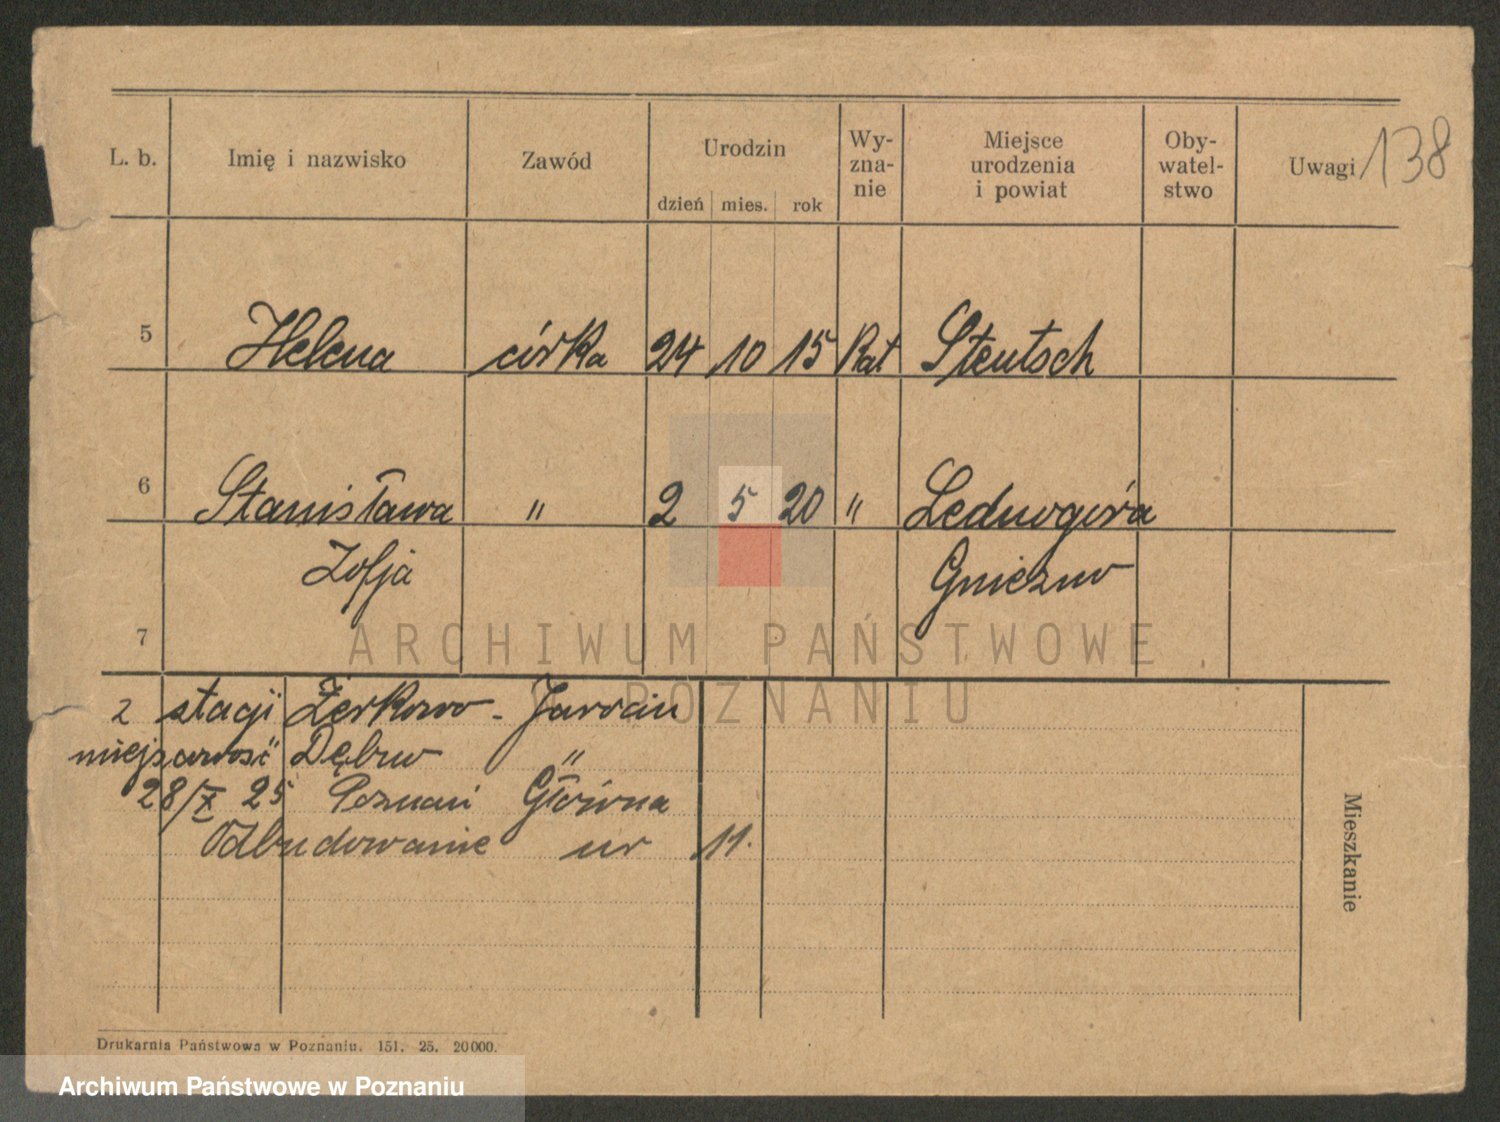 L. b. Imię i nazwisko Zawód Urodzin dzień mies. rok Wy-zna-nie Miejsce urodzenia i powiat Oby-watel-stwo Uwagi 138
5 Helena córka 24 10 15 Kat Stentsch
6 Stanisława " 2 5 20 " Lednogóra
Zofja Gniezno
7
ARCHIWUM PAŃSTWOWE
W POZNANIU
z stacji Żerkowo - Jarocin
miejscowość Dębno "
28/X 25 Poznań Główna
Odbudowanie nr 11.
Mieszkanie
Drukarnia Państwowa w Poznaniu. 151. 25. 20000.
Archiwum Państwowe w Poznaniu